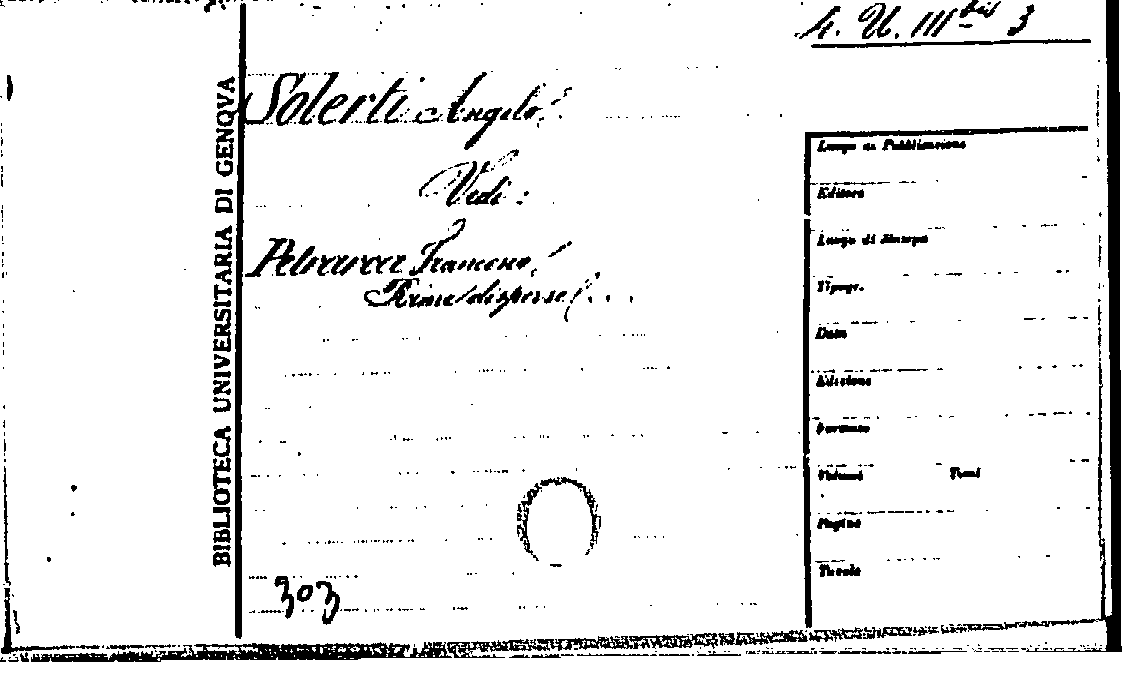 BIBLIOTECA UNIVERSITARIA DI GENOVA
Solerti Angelo.
Vedi :
Petrarca Francesco.
Rime disperse . . .
303
Luogo di Pubblicazione
Editore
Luogo di Stampa
Tipogr.
Data
Edizione
Formato
Volumi Tomi
Pagine
Tavole